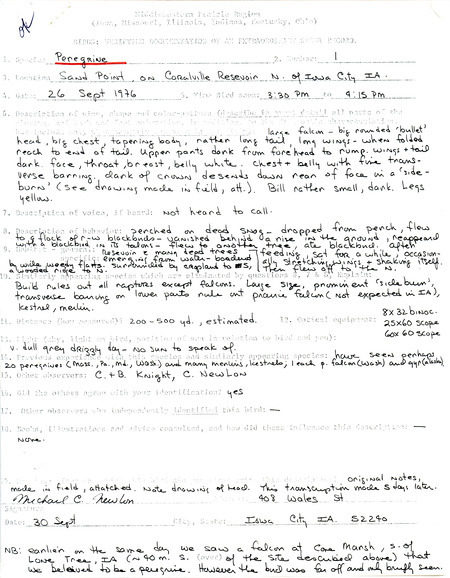 Middlewestern Prairie Region
(Iowa, Missouri, Illinois, Indiana, Kentucky, Ohio)
BIRDS: VERIFYING DOCUMENTATION OF AN EXTRAORDINARY SIGHT RECORD
1. Species: Peregrine 2. Number: 1
3. Location: Sand Point, on Coralville Resevoir, N. of Iowa City IA.
4. Date: 26 Sept 1976 5. Time Bird seen: 3:30 pm to 4:15 pm
large falcon - big rounded 'bullet'
head, big chest, tapering body, rather long tail, long wings - when folded
reach to end of tail. Upper parts dark from forehead to rump. wings + tail
dark. face, throat, breast, belly white. Chest + belly with fine trans-
verse barring, dark of crown desends down rear of face in a 'side-
burn' (see drawing made in field, att.). Bill rather small, dark. Legs
yellow.
7. Description of voice, if heard: not heard to call.
8. Description of behavior: perched on dead snag - dropped from perch, flew
to flock of blackbirds - vanished behind a rise in the ground, reappeared
with blackbird in its talons - flew to another tree, ate blackbird. After
feeding, sat for a while, occasion-
ally stretching wings + shaking itself.
then flew off to the N.
Resevoir + many dead trees
emerging from water - boardered
by wide weedy flats. Surrounded by cropland to S,
wooded rise to N.
Build rules out all raptors except falcons. Large size, prominent 'sideburn',
transverse barring on lower parts rule out prairie falcon (not expected in IA),
kestrel, merlin.
11. Distance (how measured): 200-500 yd., estimated. 12. Optical equipment: 8x32 binoc.
25x60 scope
60x60 scope
v. dull grey drizzly day - no sun to speak of.
14. Previous experience with this species and similarly appearing species: have seen perhaps
20 peregrines (Mass, Pa, Md, Wash) and many merlins, kestrels, 1 each p. falcon (Wash) and gyr (alask)
15. Other observers: C. + B. Knight, C. Newlon
16. Did the others agree with your identification? yes
17. Other observers who independently identified this bird: —
18. Books, illustrations and advice consulted, and how did these influence this description: —
none.
original notes,
made in field, attatched. Note drawing of head. This transcription made 5 days later.
Michael C. Newlon 408 Wales St
Signature
Date: 30 Sept City, State: Iowa City IA. 52240
NB: earlier on the same day we saw a falcon at Cone Marsh, s. of
Lone Tree, IA (~40 m. S. (over) of the site described above) that
we believed to be a peregrine. However the bird was far off and only briefly seen.